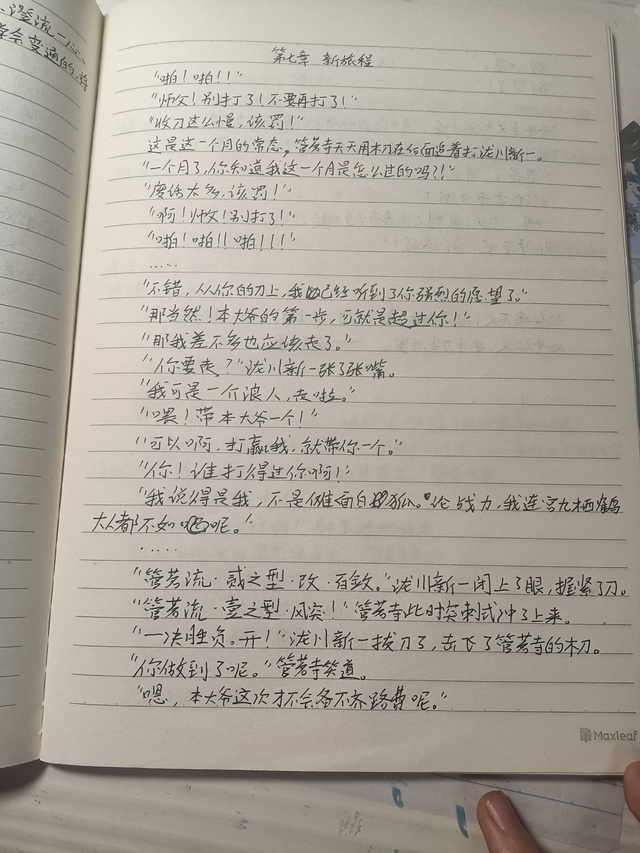 澄流一心
学会变通的,将
第七章 新旅程
“啪!啪!!”
“师父!别打了!不要再打了!”
“收刀这么慢,该罚!”
这是这一个月的常态,管若寺天天用木刀在后面追着打泷川新一。
“一个月了,你知道我这一个月是怎么过的吗?!”
“废话太多,该罚!”
“啊!师父!别打了!”
“啪!啪!!啪!!!”
……
“不错,从你的刀上,我已经听到了你强烈的愿望了。”
“那当然!本大爷的第一步,可就是超过你!”
“那我差不多也应该走了。”
“你要走?”泷川新一张了张嘴。
“我可是一个浪人,走啦。”
“喂!带本大爷一个!”
“可以啊,打赢我,就带你一个。”
“你!谁打得过你啊!”
“我说得是我,不是傩面白狐。论战力,我连宫九栖鹤
大人都不如呢。”
……
“管若流·贰之型·改·百敛。”泷川新一闭上了眼,握紧了刀。
“管若流·壹之型·风突!”管若寺此时突刺式冲了上来。
“一决胜负。开!”泷川新一拔刀了,击飞了管若寺的木刀。
“你做到了呢。”管若寺笑道。
“嗯,本大爷这次才不会备不齐路费呢。”
Maxleaf